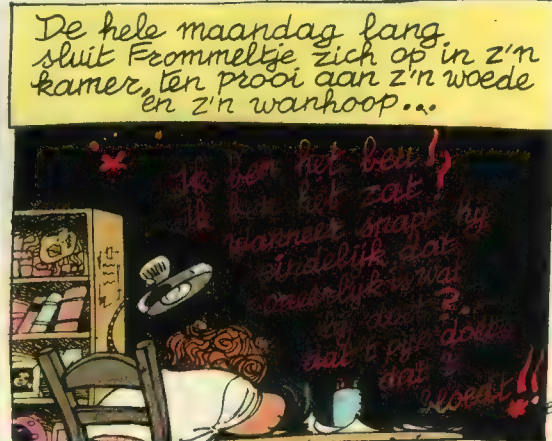 De hele maandag lang
sluit Frommeltje zich op in z'n
kamer, ten prooi aan z'n woede
en z'n wanhoop...
Ik ben het beu!
Ik ben het zat!
wanneer snapt hij
eindelijk dat
wat
?
pijn doet
dat 't
bloedt!!